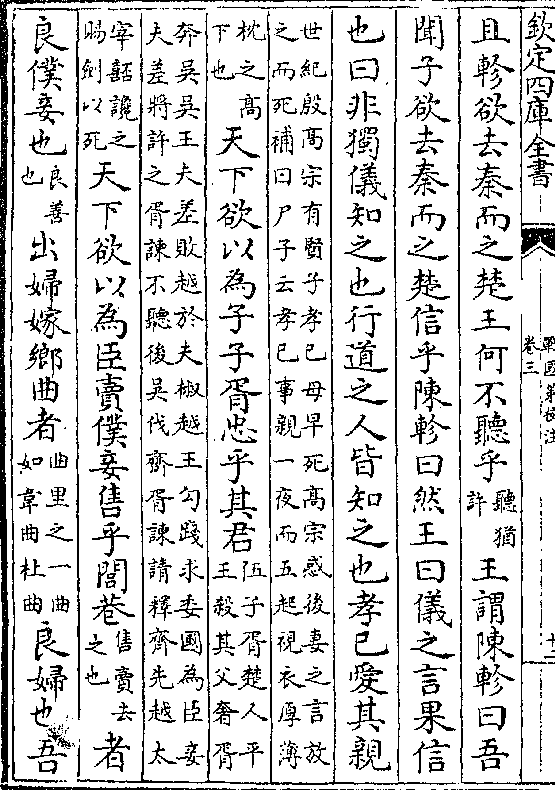 欽定四庫全書
戰國策校注
卷三
十二
且軫欲去秦而之楚王何不聽乎聽猶許王謂陳軫曰吾
聞子欲去秦而之楚信乎陳軫曰然王曰儀之言果信
也曰非獨儀知之也行道之人皆知之也孝已愛其親
世紀殷髙宗有賢子孝已母早死髙宗惑後妻之言放
之而死補曰尸子云孝已事親一夜而五起視衣厚薄
枕之髙下也天下欲以為子子胥忠乎其君伍子胥楚人平王殺其父奢胥
奔吳吳王夫差敗越於夫椒越王勾踐求委國為臣妾
夫差將許之胥諫不聽後吳伐齊胥諫請釋齊先越太
宰嚭讒之賜劍以死天下欲以為臣賣僕妾售乎閭巷售賣去之也者
良僕妾也良善也出婦嫁鄉曲者曲里之一曲如韋曲杜曲良婦也吾